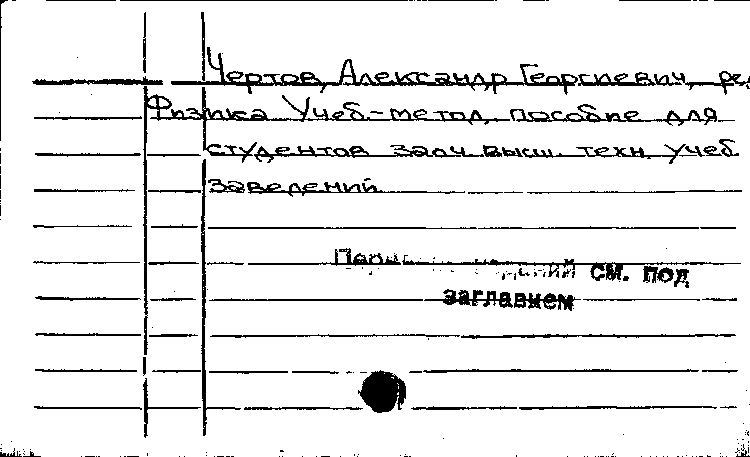 Чертов, Александр Георгиевич, ред
Физика Учеб-метод. пособие для
студентов заоч. высш. техн. учеб.
заведений
см. под
заглавием